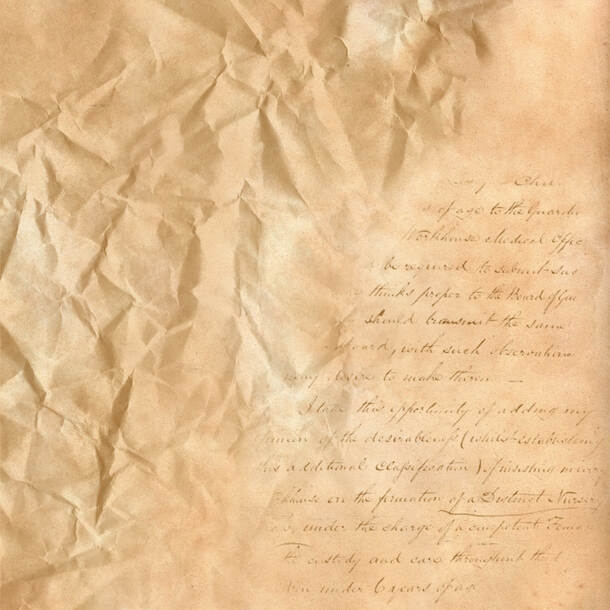 of age to the Guardi
Workhouse Medical Offic
be required to submit
thinks proper to the Board of Gua
should transmit the same
oard, with such observations
may desire to make thereon —
I take this opportunity of adding my
of the desirableness (whilst establishing
additional Classification) of
khouse on the formation of a Distinct Nurser
under the charge of a competent Female
the custody and care throughout the
ren under 6 years of age